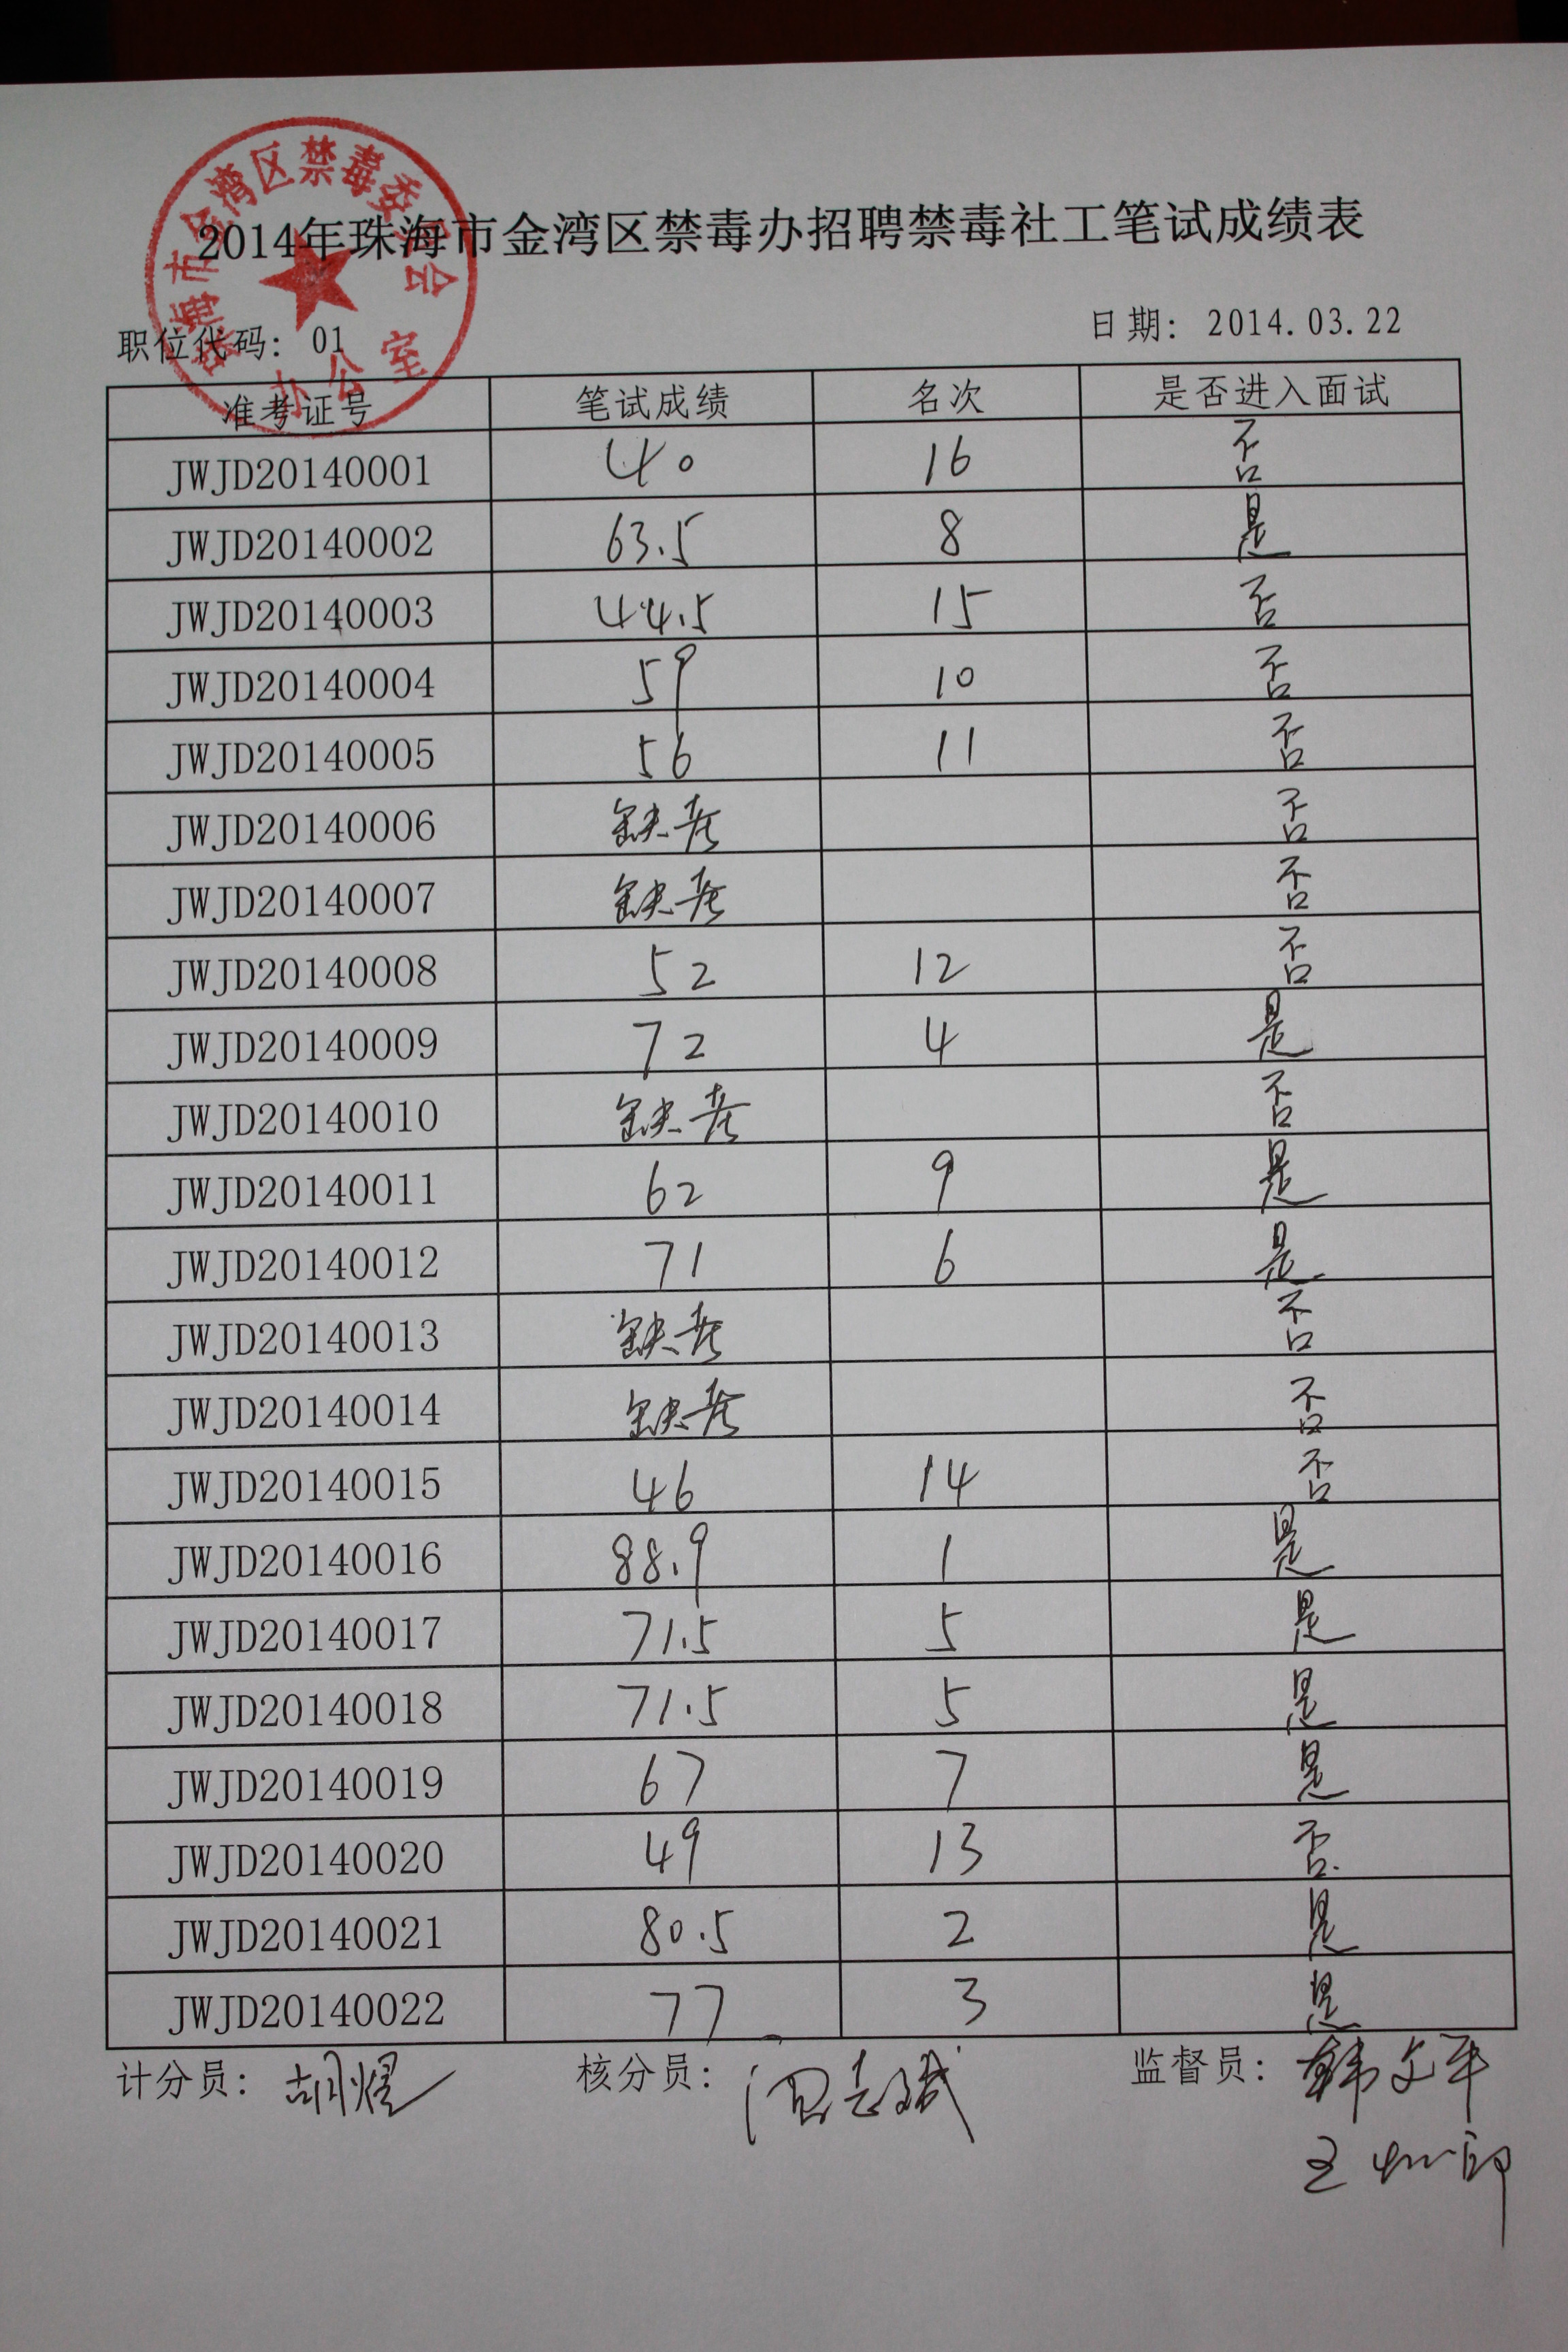 珠海市金湾区禁毒委员会
办公室
2014年珠海市金湾区禁毒办招聘禁毒社工笔试成绩表
职位代码: 01 日期: 2014.03.22
准考证号 笔试成绩 名次 是否进入面试
JWJD20140001 40 16 否
JWJD20140002 63.5 8 是
JWJD20140003 44.5 15 否
JWJD20140004 59 10 否
JWJD20140005 56 11 否
JWJD20140006 缺考 否
JWJD20140007 缺考 否
JWJD20140008 52 12 否
JWJD20140009 72 4 是
JWJD20140010 缺考 否
JWJD20140011 62 9 是
JWJD20140012 71 6 是
JWJD20140013 缺考 否
JWJD20140014 缺考 否
JWJD20140015 46 14 否
JWJD20140016 88.9 1 是
JWJD20140017 71.5 5 是
JWJD20140018 71.5 5 是
JWJD20140019 67 7 是
JWJD20140020 49 13 否
JWJD20140021 80.5 2 是
JWJD20140022 77 3 是
计分员: 胡煜 核分员: 监督员: 韩文平
王